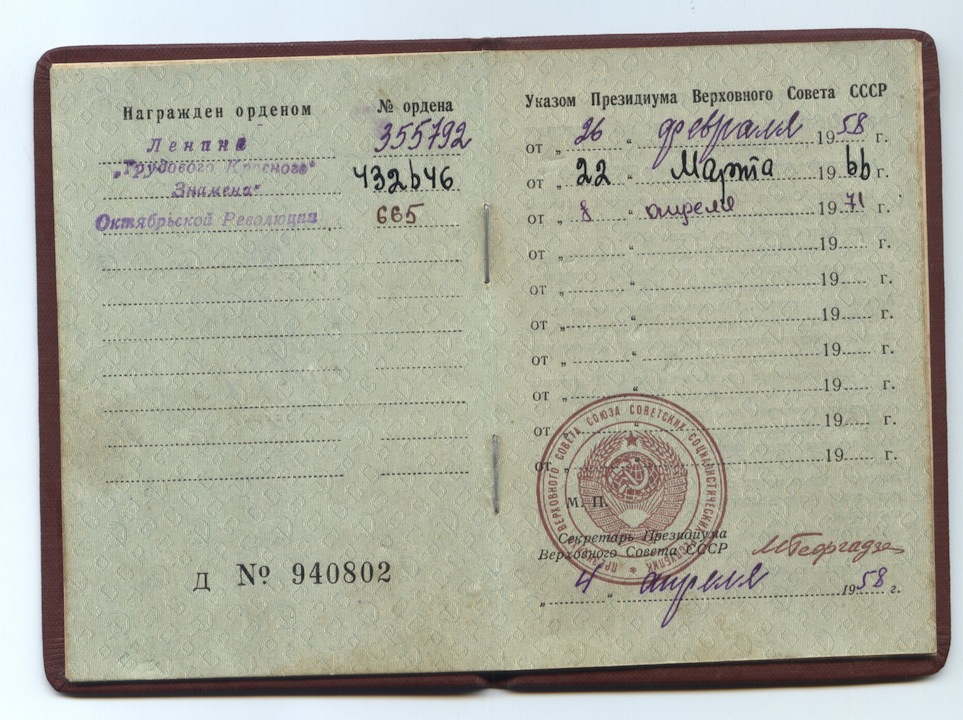 Награжден орденом
№ ордена
Ленина
355792
„Трудового Красного
Знамени“
432646
Октябрьской Революции
665
Д № 940802
Указом Президиума Верховного Совета СССР
от „ 26 “ февраля 1958 г.
от „ 22 “ Марта 1966 г.
от „ 8 “ апреля 1971 г.
от „ “ 19 г.
от „ “ 19 г.
от „ “ 19 г.
от „ “ 19 г.
от „ “ 19 г.
от „ “ 19 г.
от „ “ 19 г.
ПРЕЗИДИУМ ВЕРХОВНОГО СОВЕТА СОЮЗА СОВЕТСКИХ СОЦИАЛИСТИЧЕСКИХ РЕСПУБЛИК
М. П.
Секретарь Президиума
Верховного Совета СССР
МГеоргадзе
„ 4 “ апреля 1958 г.